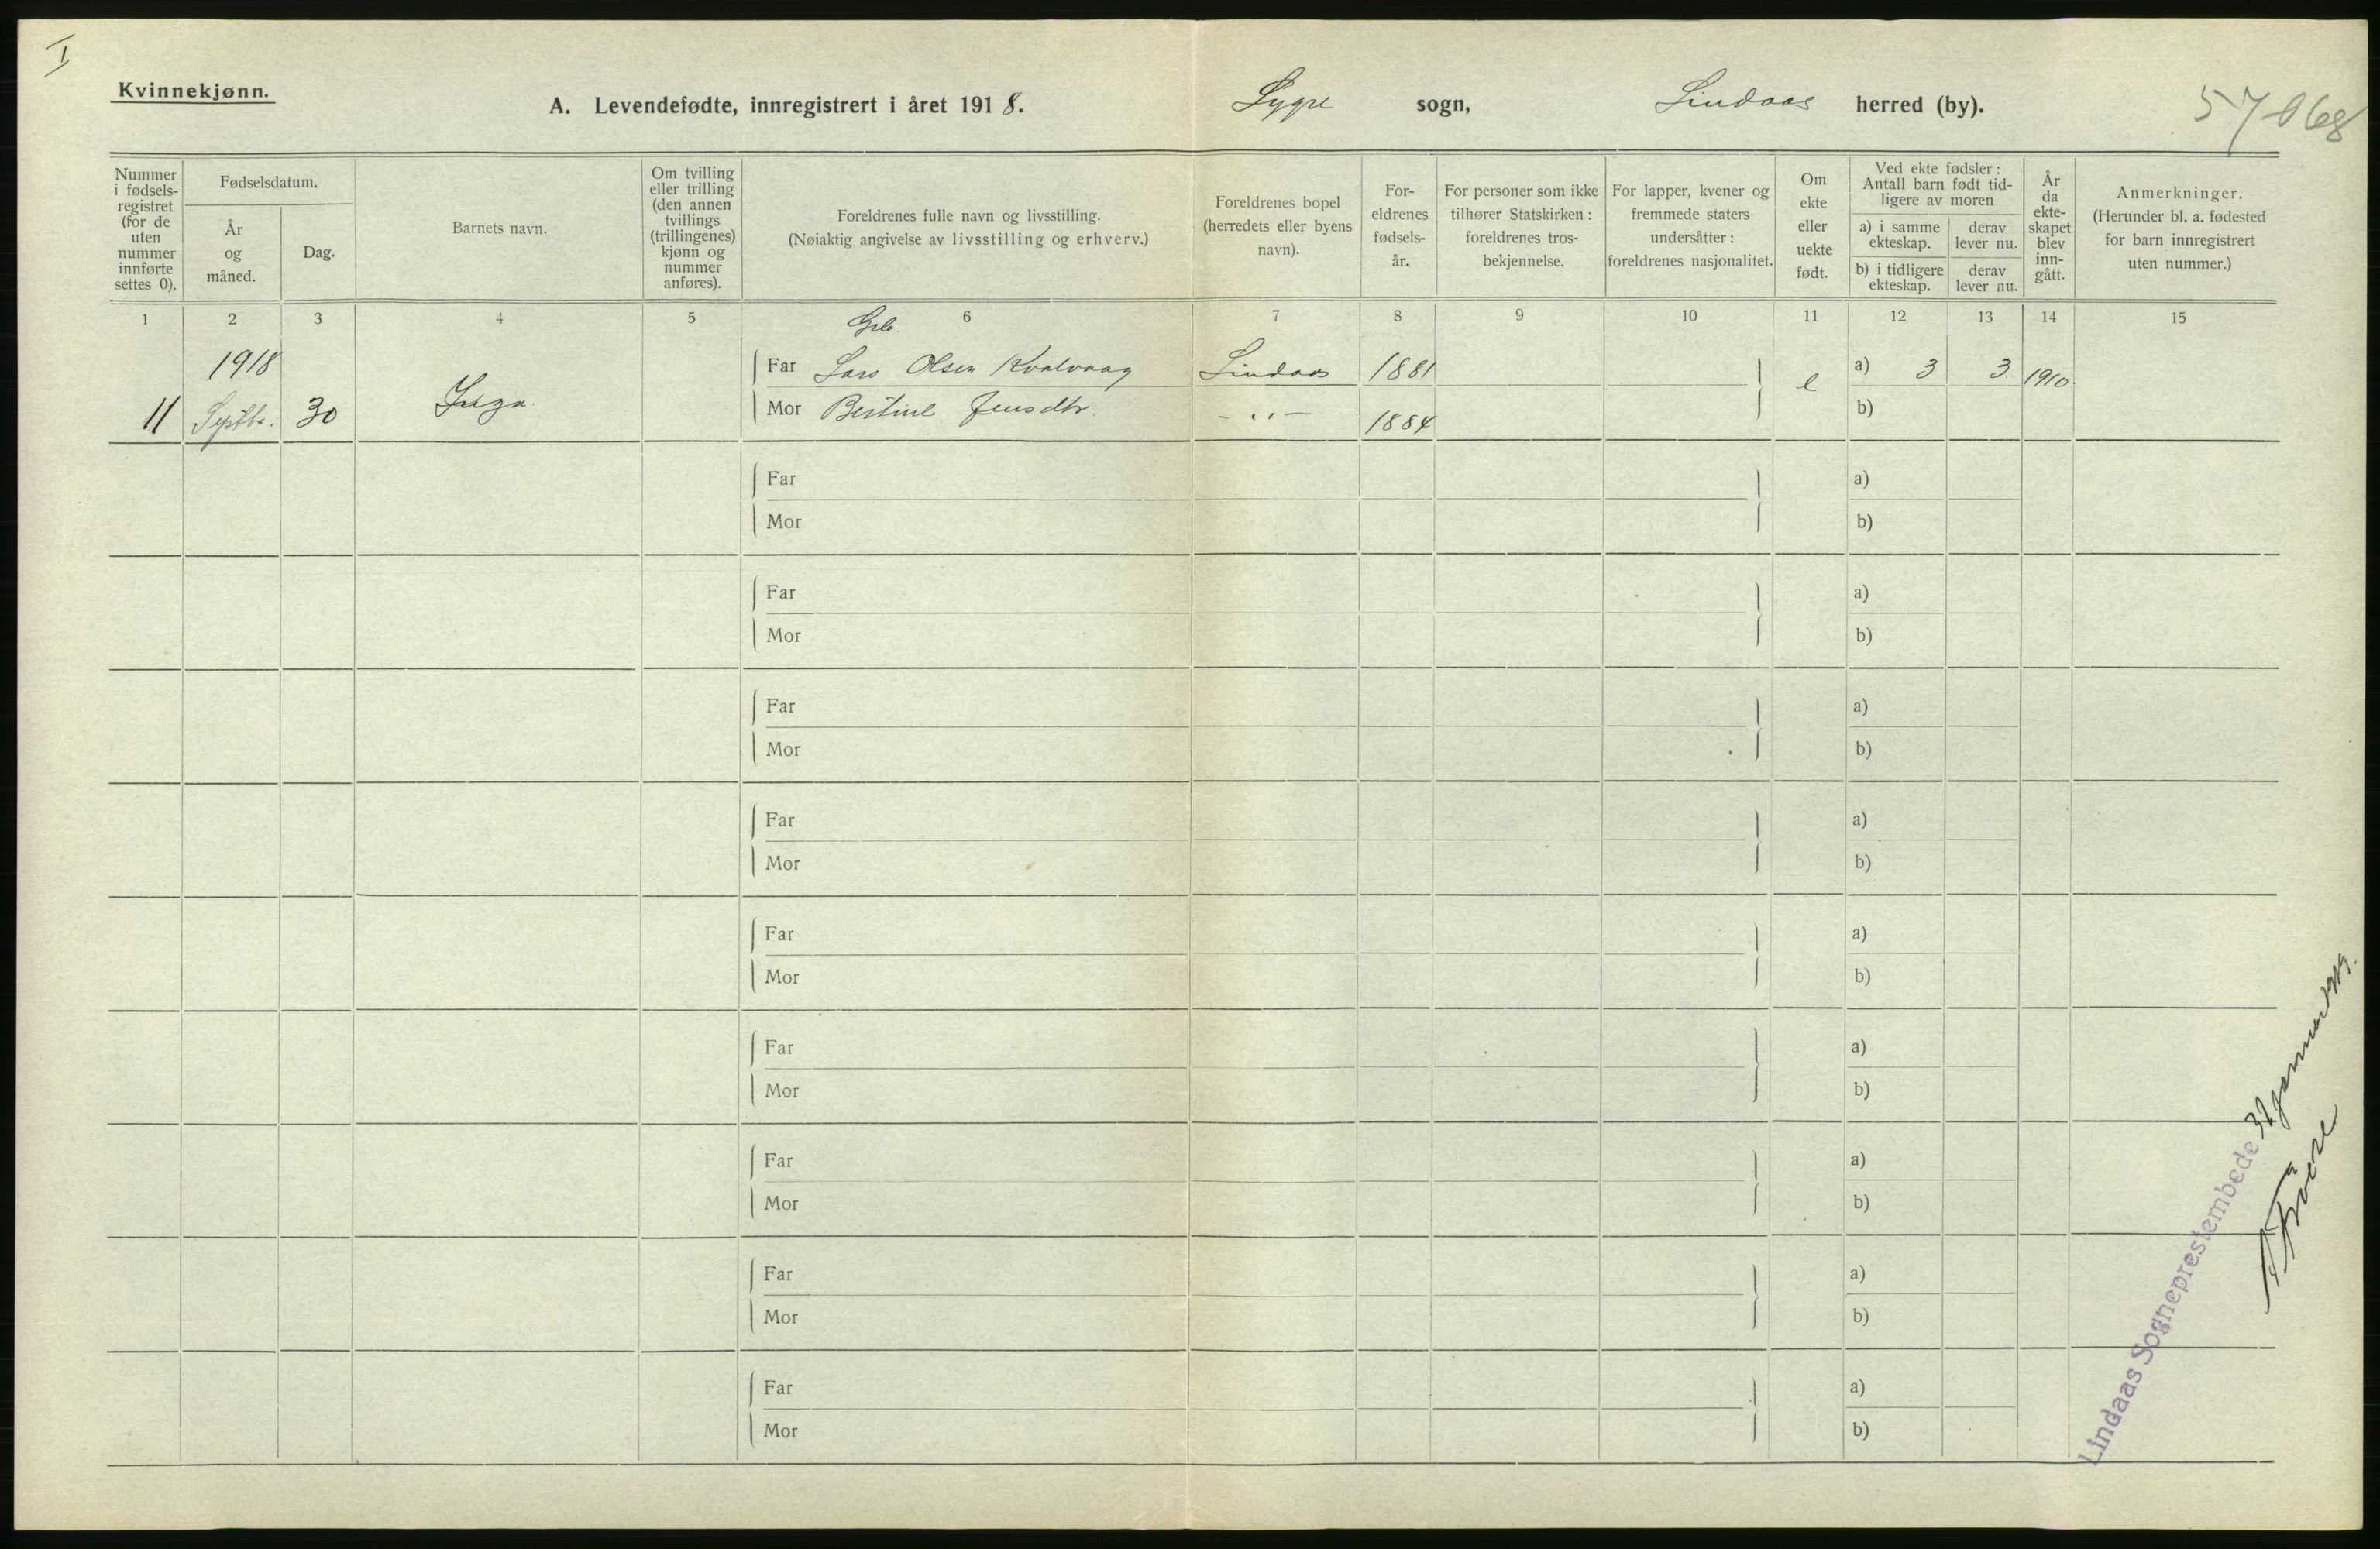 I
Kvinnekjønn.
A. Levendefødte, innregistrert i året 1918.
Lygre sogn, Lindaas herred (by).
57068
Nummer i fødselsregistret (for de uten nummer innførte settes 0).
Fødselsdatum.
År og måned.
Dag.
Barnets navn.
Om tvilling eller trilling (den annen tvillings (trillingenes) kjønn og nummer anføres).
Foreldrenes fulle navn og livsstilling.
(Nøiaktig angivelse av livsstilling og erhverv.)
Foreldrenes bopel (herredets eller byens navn).
Foreldrenes fødselsår.
For personer som ikke tilhører Statskirken: foreldrenes trosbekjennelse.
For lapper, kvener og fremmede staters undersåtter: foreldrenes nasjonalitet.
Om ekte eller uekte født.
Ved ekte fødsler: Antall barn født tidligere av moren
a) i samme ekteskap.
derav lever nu.
b) i tidligere ekteskap.
derav lever nu.
År da ekteskapet blev inngått.
Anmerkninger.
(Herunder bl. a. fødested for barn innregistrert uten nummer.)
1 2 3 4 5 6 7 8 9 10 11 12 13 14 15
Grb.
1918
Far Lars Olsen Kvalvaag Lindaas 1881 e a) 3 3 1910
11 Septbr. 30 Inga. Mor Bertine Jensdtr. - ,, - 1884 b)
Far a)
Mor b)
Far a)
Mor b)
Far a)
Mor b)
Far a)
Mor b)
Far a)
Mor b)
Far a)
Mor b)
Far a)
Mor b)
Far a)
Mor b)
Far a)
Mor b)
Lindaas Sogneprestembede 31 januar 1919.